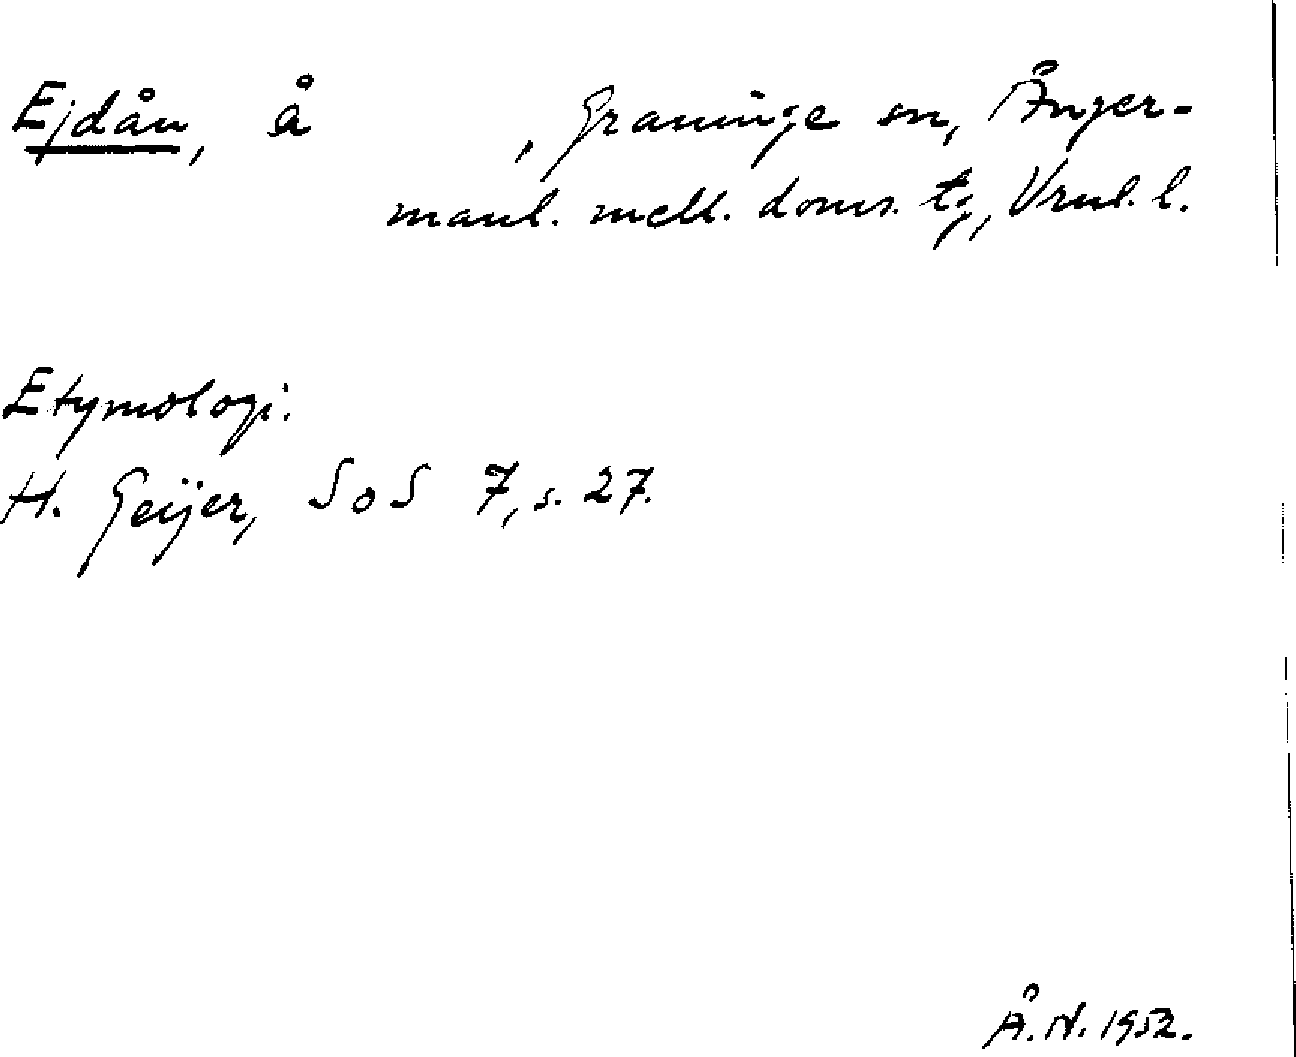 Ejdån, å , Graninge sn, Ånger-
manl. mell. doms. tg, Vrnl. l.
Etymologi.
H. Geijer, SoS 7, s. 27.
Å. N. 1952.